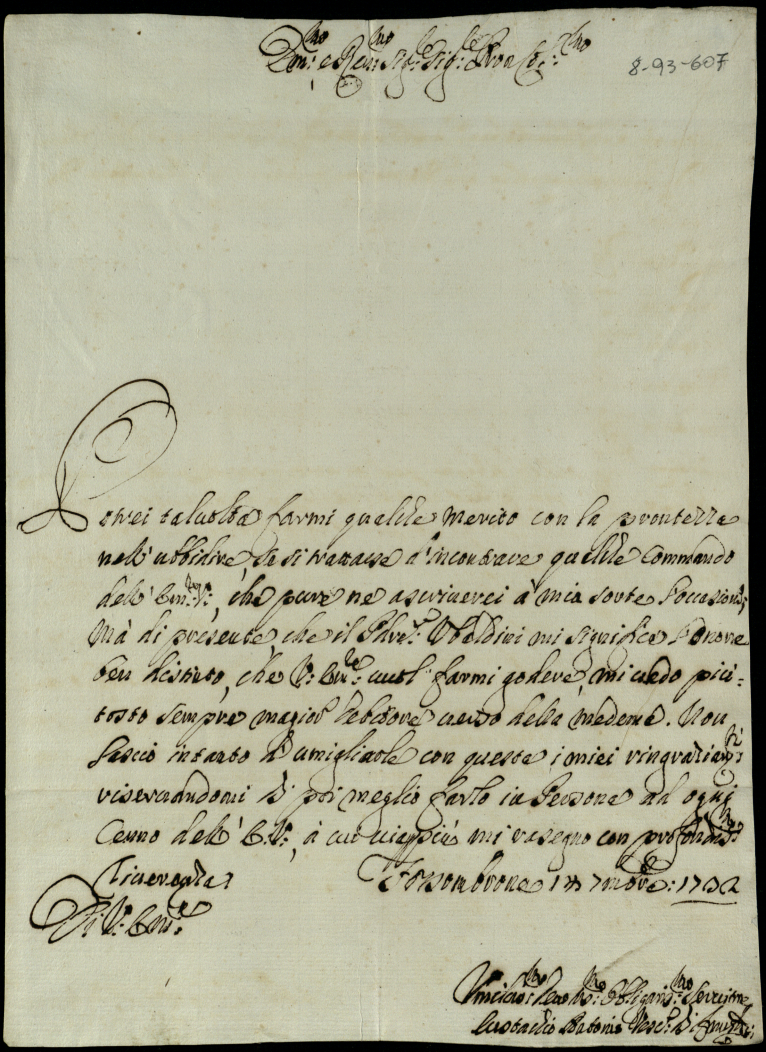 Em:mo e Rev:mo Sig:re Sig:re Pron Col:mo
8-93-607
Potrei talvolta farmi qualche merito con la prontezza
nell'ubbidire, se si trattasse d'incontrare qualche commando
dell'Em:za V:, che pure ne ascriverei à mia sorte l'occasione;
Mà di presente, che il Ubaldini mi significa l'onore
ben distinto, che V: Em:za vuol farmi godere, mi vedo più:
tosto sempre magior debitore verso della medema. Non
lascio intanto d'umigliarle con questa i miei ringraziam:ti
riserbandomi di poi meglio farlo in Persona ad ogni
Cenno dell'E.V:, à cui viappiù mi rasegno con profondiss:ma
riverenza
Fossombrone 7mbre: 1732
Di V: Em:za
Umiliss:mo Devotiss:mo Obligatiss:mo Servitore
Eustachio Antonio Vesc:o di